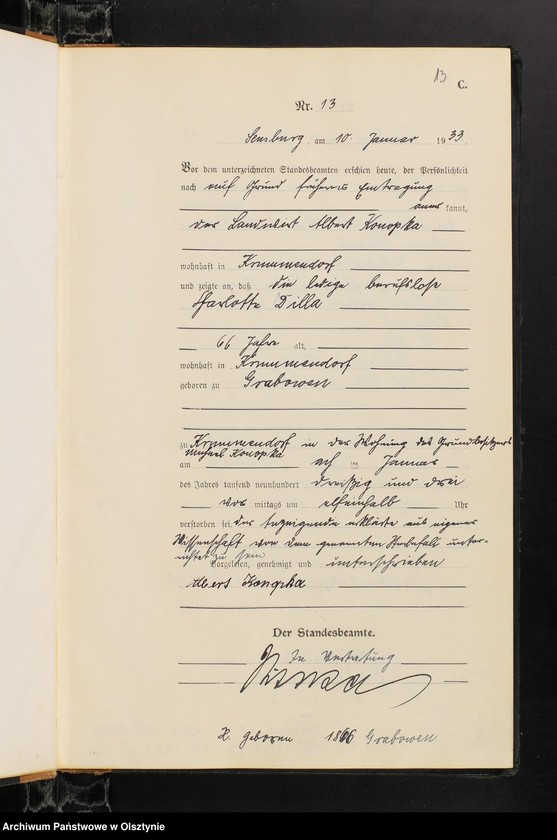 13
C.
Nr. 13
Sensburg, am 10. Januar 1933.
Vor dem unterzeichneten Standesbeamten erschien heute, der Persönlichkeit
nach auf Grund früherer Eintragung
anerkannt,
der Landwirt Albert Konopka
wohnhaft in Krummendorf
und zeigte an, daß die ledige berufslose
Charlotte Dilla
66 Jahre alt,
wohnhaft in Krummendorf
geboren zu Grabowen
zu Krummendorf in der Wohnung des Grundbesitzers
Michael Konopka
am acht im Januar
des Jahres tausend neunhundert dreißig und drei
vor mittags um elfeinhalb Uhr
verstorben sei. Der Anzeigende erklärte aus eigener
Wissenschaft von dem genannten Sterbefall unter-
richtet zu sein
Vorgelesen, genehmigt und unterschrieben
Albert Konopka
Der Standesbeamte.
In Vertretung
geboren 1866 Grabowen
Archiwum Państwowe w Olsztynie